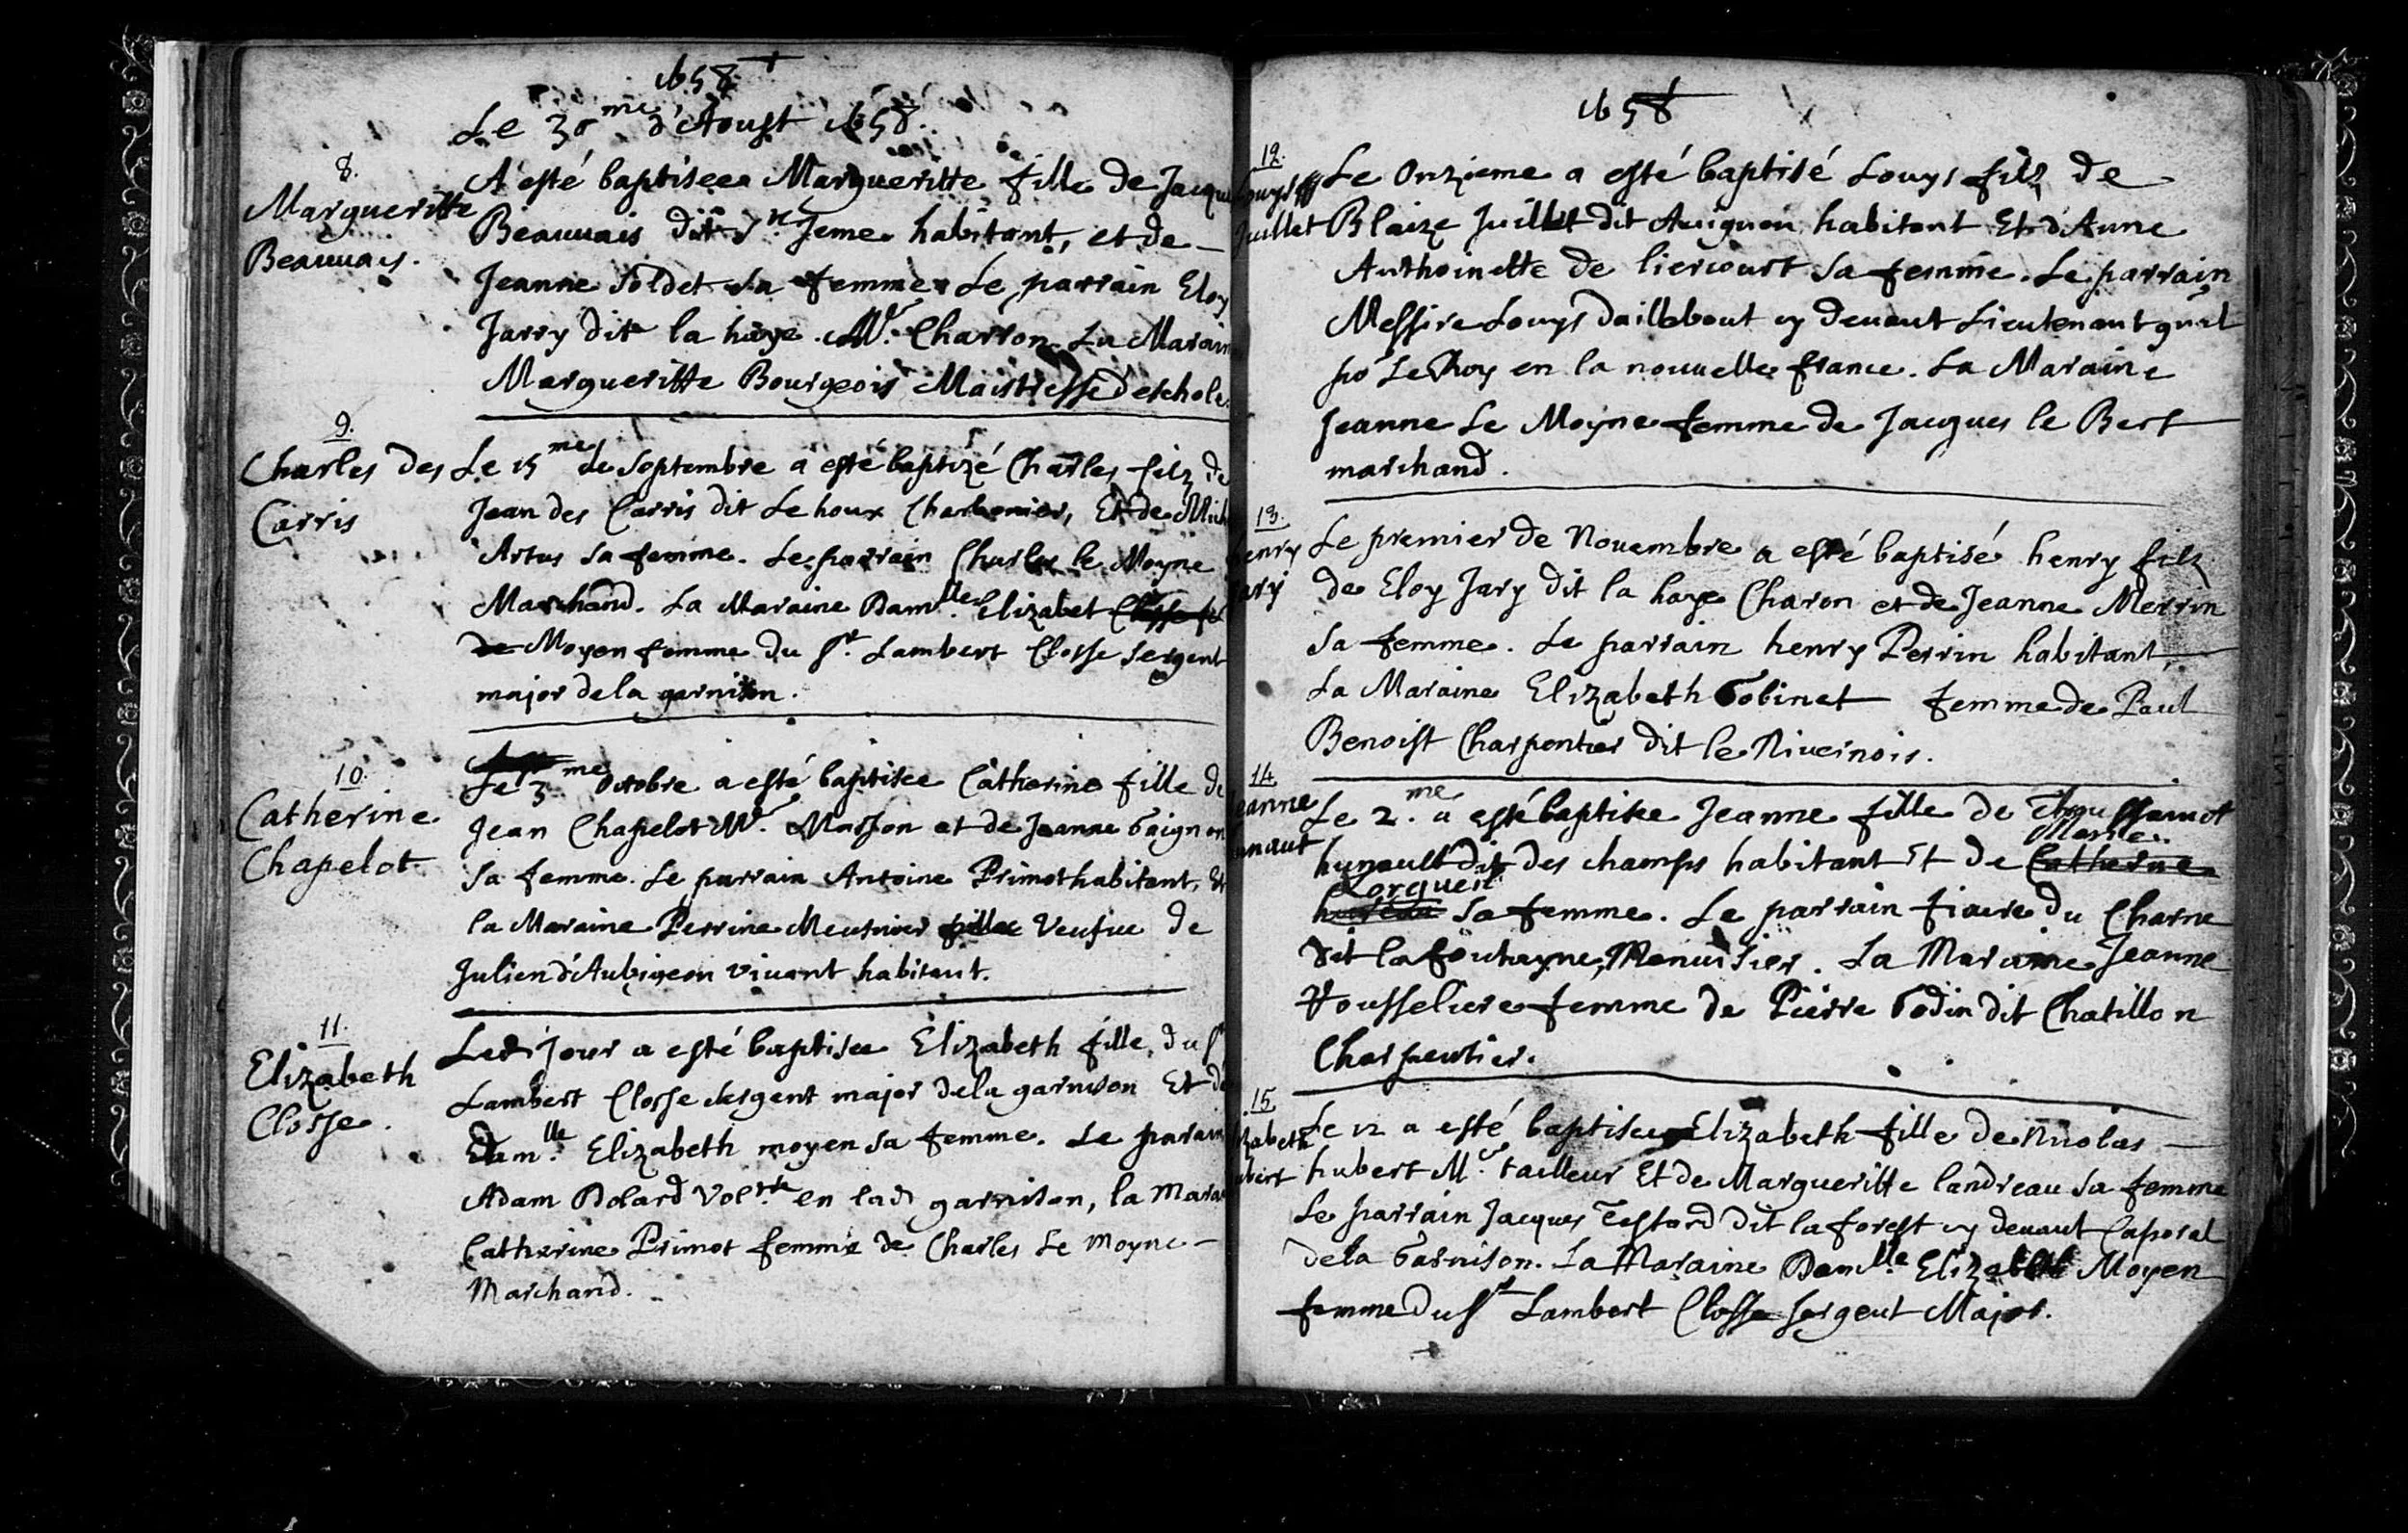 1658
Le 30me d'Aoust 1658.
8.
Margueritte
Beauuais.
A esté baptisee Margueritte fille de Jacque
Beauuais dit St Jeme habitant, et de
Jeanne Soldet sa femme Le parrain Eloy
Jarry dit la haye Mr. Charron La Marain
Margueritte Bourgeois Maistresse d'eschole
9.
Charles des
Carris
Le 15me de Septembre a esté baptizé Charles filz de
Jean des Carris dit Le houx Charbonier, Et de Mich
Artus sa femme. Le parrain Charles le Moyne
Marchand. La Maraine Damlle. Elizabet
de Moyen femme du Sr. Lambert Closse sergent
major de la garnison.
10.
Catherine
Chapelot
Le 3me Octobre a esté baptisee Catherine fille de
Jean Chapelot Mr. Masson et de Jeanne Gaignon
sa femme. Le parrain Antoine Primot habitant, Et
la Maraine Perrine Meusnier fille Veufue de
Julien d'Aubigeon viuant habitant.
11.
Elizabeth
Closse.
Led Jour a esté baptisee Elizabeth fille, du Sr
Lambert Closse sergent major dela garnison Et de
Dam.lle Elizabeth moyen sa femme. Le parain
Adam Dolard Vol.re en lad garnison, la Marai
Catherine Primot femme de Charles Le Moyne
Marchand.
1658
12.
Louys
Juillet
Le Onzieme a esté baptisé Louys filz de
Blaize Juillet dit Auignon habitant Et d'Anne
Anthoinette de liercourt sa femme. Le parrain
Messire Louys Dailbbout cy deuant Lieutenant gnal
po Le Roy en la nouuelle france. La Maraine
Jeanne Le Moyne femme de Jacques le Bert
marchand.
13.
henry
Jary
Le premier de Nouembre a esté baptisé henry filz
de Eloy Jary dit la haye Charon et de Jeanne Merrin
sa femme. Le parrain henry Perrin habitant,
La Maraine Elizabeth Gobinet femme de Paul
Benoist Charpentier dit le Niuernois.
14
eanne
unaut
Le 2.me a esté baptisee Jeanne fille de Thoussainct
Marie.
hunault dit des champs habitant Et de Catherine
Lorgueil
sa femme. Le parrain fiacre du Charne
dit la fontayne, Menuisier. La Maraine Jeanne
Rousseliere femme de Pierre Godin dit Chatillon
Charpentier.
15
izabeth
ubert
Le 12 a esté baptisee Elizabeth fille de Nicolas
hubert M.e tailleur Et de Margueritte landreau sa femme
Le parrain Jacques Testard dit la forest cy deuant Caporal
dela Garnison. La Maraine Damlle. Elizabeth Moyen
femme du Sr Lambert Closse sergent Major.